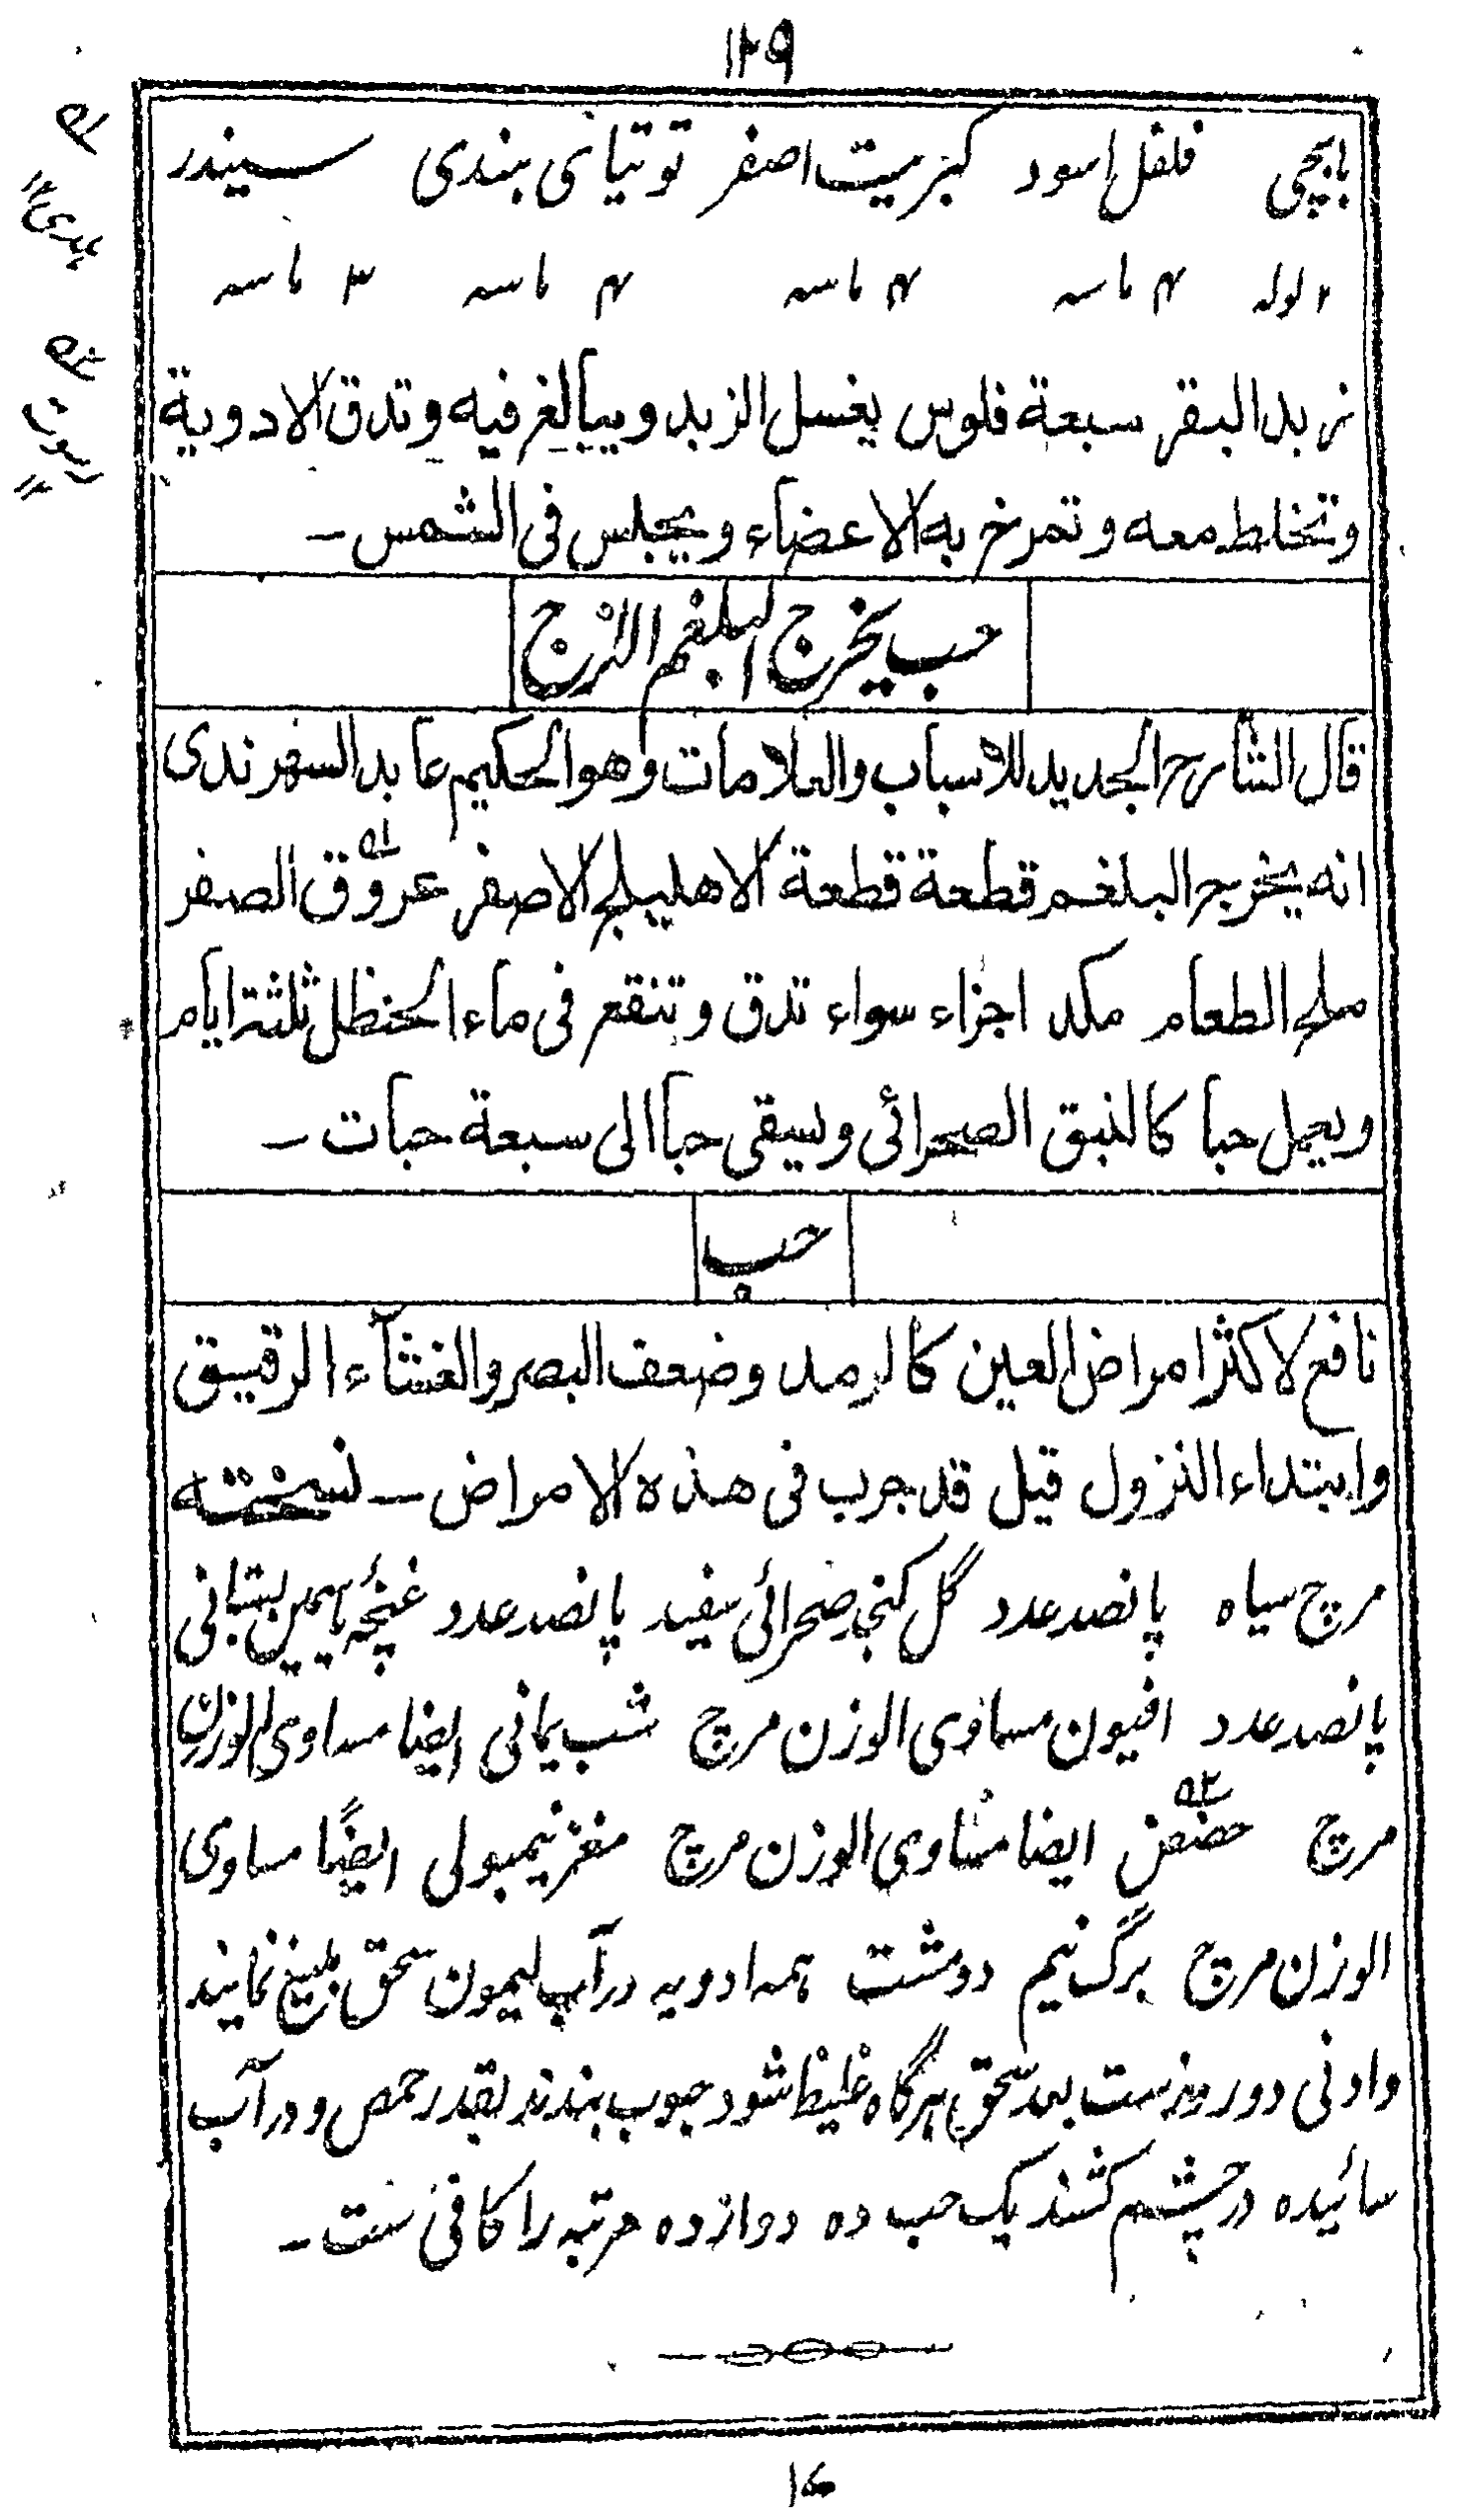 ۱۲۹
بابچی فلفل اسود کبریت اصفر توتیای ہندی سیندر
۴ ماسہ ۴ ماسہ ۴ ماسہ ۳ ماسہ
زبد البقر سبعة فلوس یغسل الزبد ویبالغ فیه وتدق الادویة
وتخلط معه وتمرخ به الاعضاء ویجلس فی الشمس ـ
حب یخرج البلغم اللزج
قال الشارح الجدید للاسباب والعلامات وهو الحکیم عابد السهرندی
انه یخرج البلغم قطعة قطعة الاهلیلج الاصفر عروق الصفر
ملح الطعام مکد اجزاء سواء تدق وتنقع فی ماء الحنظل ثلثة ایام
ویعمل حبا کالنبق الصحرائی ویسقی حبا الی سبعة حبات ـ
حب
نافع لاکثر امراض العین کالرمد وضعف البصر والغشاء الرقیق
وابتداء النزول قیل قد جرب فی هذه الامراض ـ نسخته
مرچ سیاہ پانصد عدد گل کنجد صحرائی سفید پانصد عدد غنچۂ یاسمین بستانی
پانصد عدد افیون مساوی الوزن مرچ شب یمانی ایضا مساوی الوزن
مرچ حضض ایضا مساوی الوزن مرچ مغز نیمبولی ایضًا مساوی
الوزن مرچ برگ نیم دو مشت ہمہ ادویہ در آب لیمون سحق بلیغ نمایند
وادنی دو روزست بعد سحق ہرگاہ غلیظ شود حبوب بندند بقدر حمص و در آب
سائیدہ در چشم کشند یک حب دہ دوازدہ مرتبہ را کافی ست ـ
۱ہ
ہلدی ۱۲
۲ہ
رسوت ۱۲
۱۷